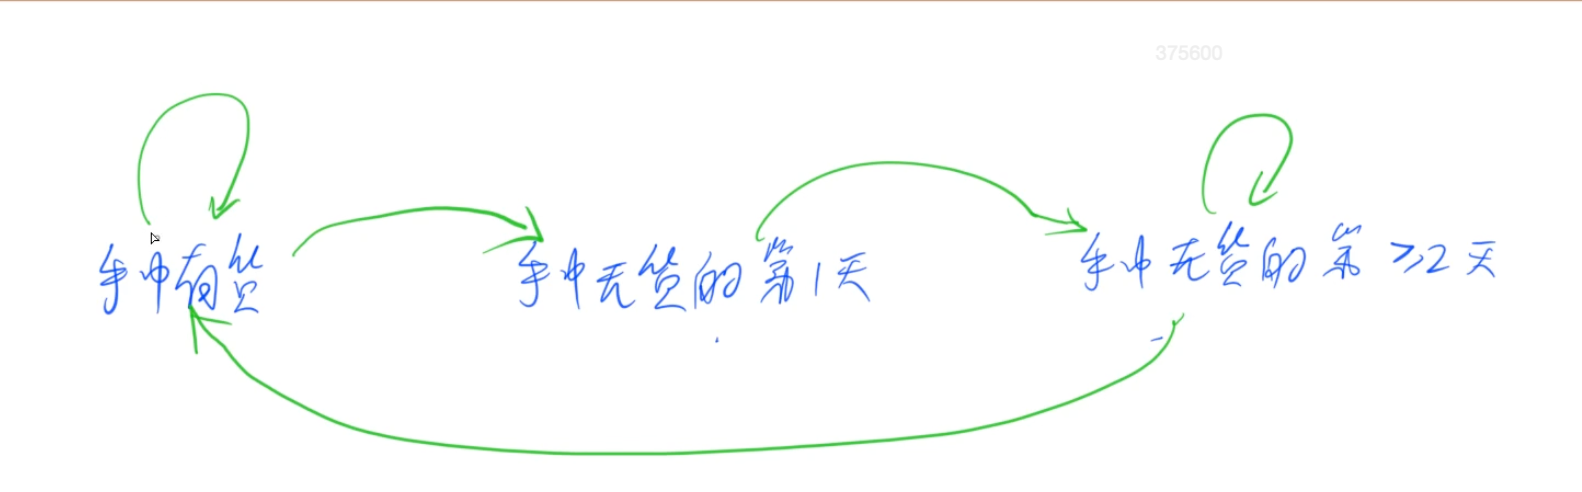 375600
手中有货
手中无货的第1天
手中无货的第≥2天